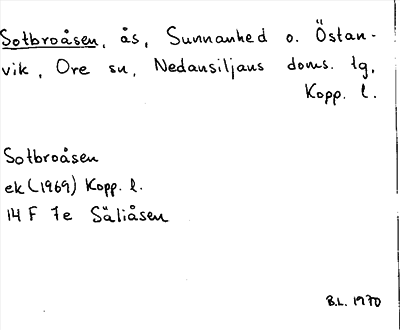 Sotbroåsen, ås, Sunnanhed o. Östan-
vik, Ore sn, Nedansiljans doms. tg,
Kopp. l.
Sotbroåsen
ek (1969) Kopp. l.
14 F 7e Säliåsen
B.L. 1970